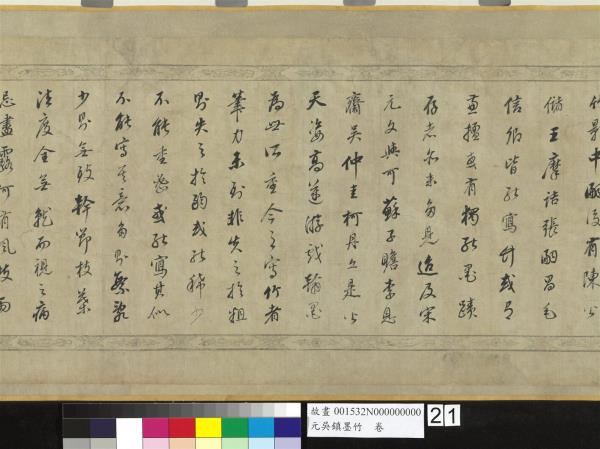 竹景中後有陳公
儲王摩詰張毛
信卿皆能寫竹或
畫擅有獨能墨蹟
存者名未多見迨及宋
元文與可蘇子瞻李息
齋吳仲圭柯丹丘是以
天姿高邁游戲翰墨
為世所重今之寫竹者
筆力未到非失之於粗
則失之於或能稀少
不能重密或能寫其似
不能寫其意多則繁亂
少則無致幹節枝葉
法度全無就而視之病
忌盡露何有風枝雨
故畫 001532N000000000
元吳鎮墨竹 卷
21